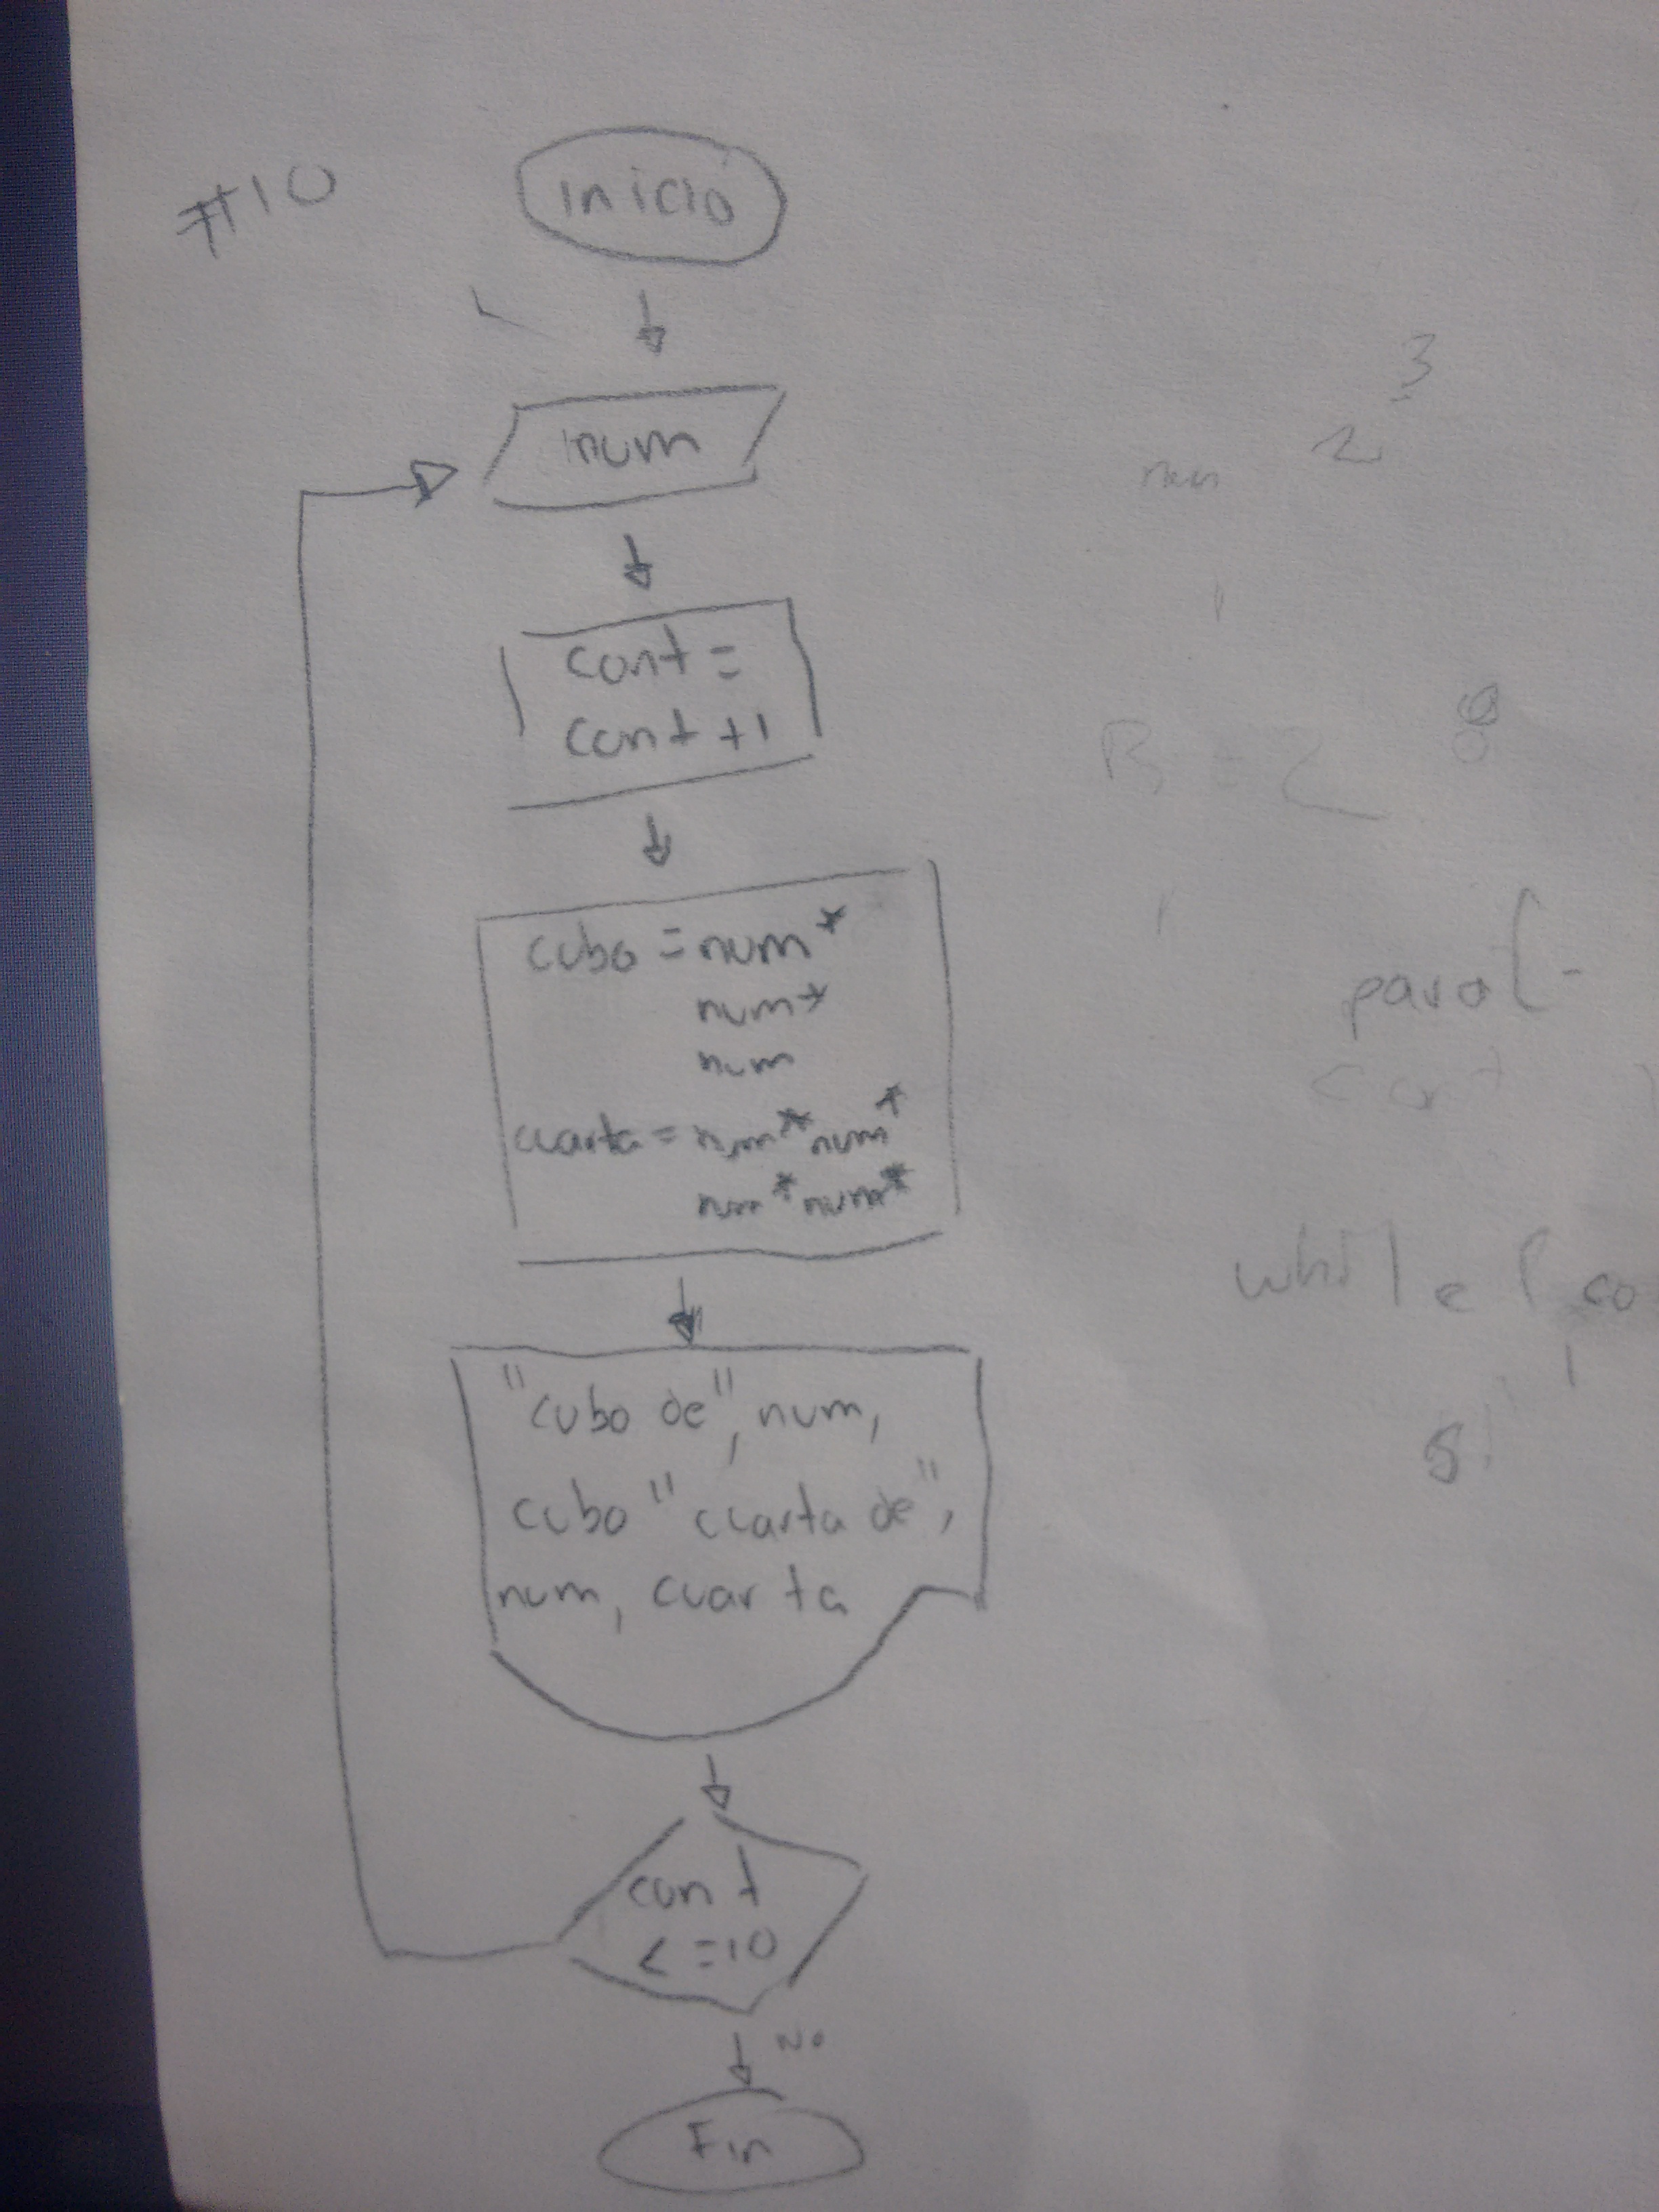 #10
inicio
num
cont =
cont +1
cubo = num *
num *
num
cuarta = num * num *
num * num *
"cubo de", num,
cubo "cuarta de",
num, cuarta
cont
<=10
No
Fin
3
2
num
while